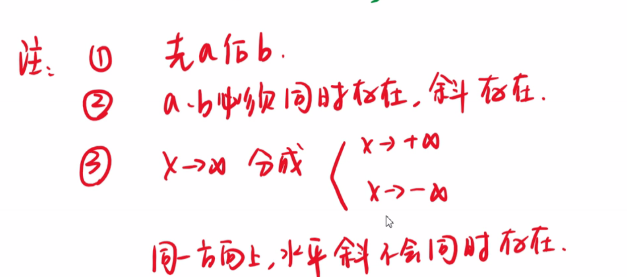 注: ① 先a后b.
② a、b必须同时存在,斜存在.
③ x→∞ 分成 { x→+∞
x→-∞
同一方向上,水平斜不会同时存在.